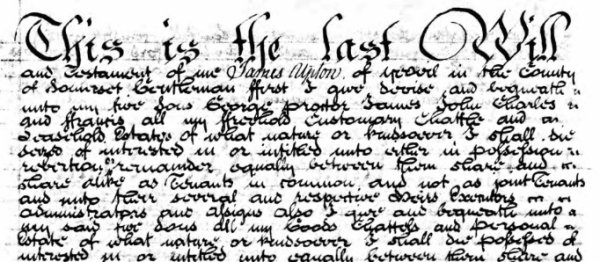 This is the last Will
and Testament of me James Upton of Yeovil in the County
of Somerset Gentleman ffirst I give devise and bequeath
unto my five Sons George Proctor James John Charles
and ffrancis all my ffreehold Customary Chattle and
Leasehold Estates of what nature or kindsoever I shall die
seized of interested in or intitled unto either in possession
revertion or remainder equally between them share and
share alike as Tenants in common and not as joint Tenants
and unto their several and respective Heirs Executors
Administrators and Assigns Also I give and bequeath unto
my said five Sons all my Goods Chattels and personal
Estate of what nature or kindsoever I shall die possessed of
interested in or intitled unto equally between them share and